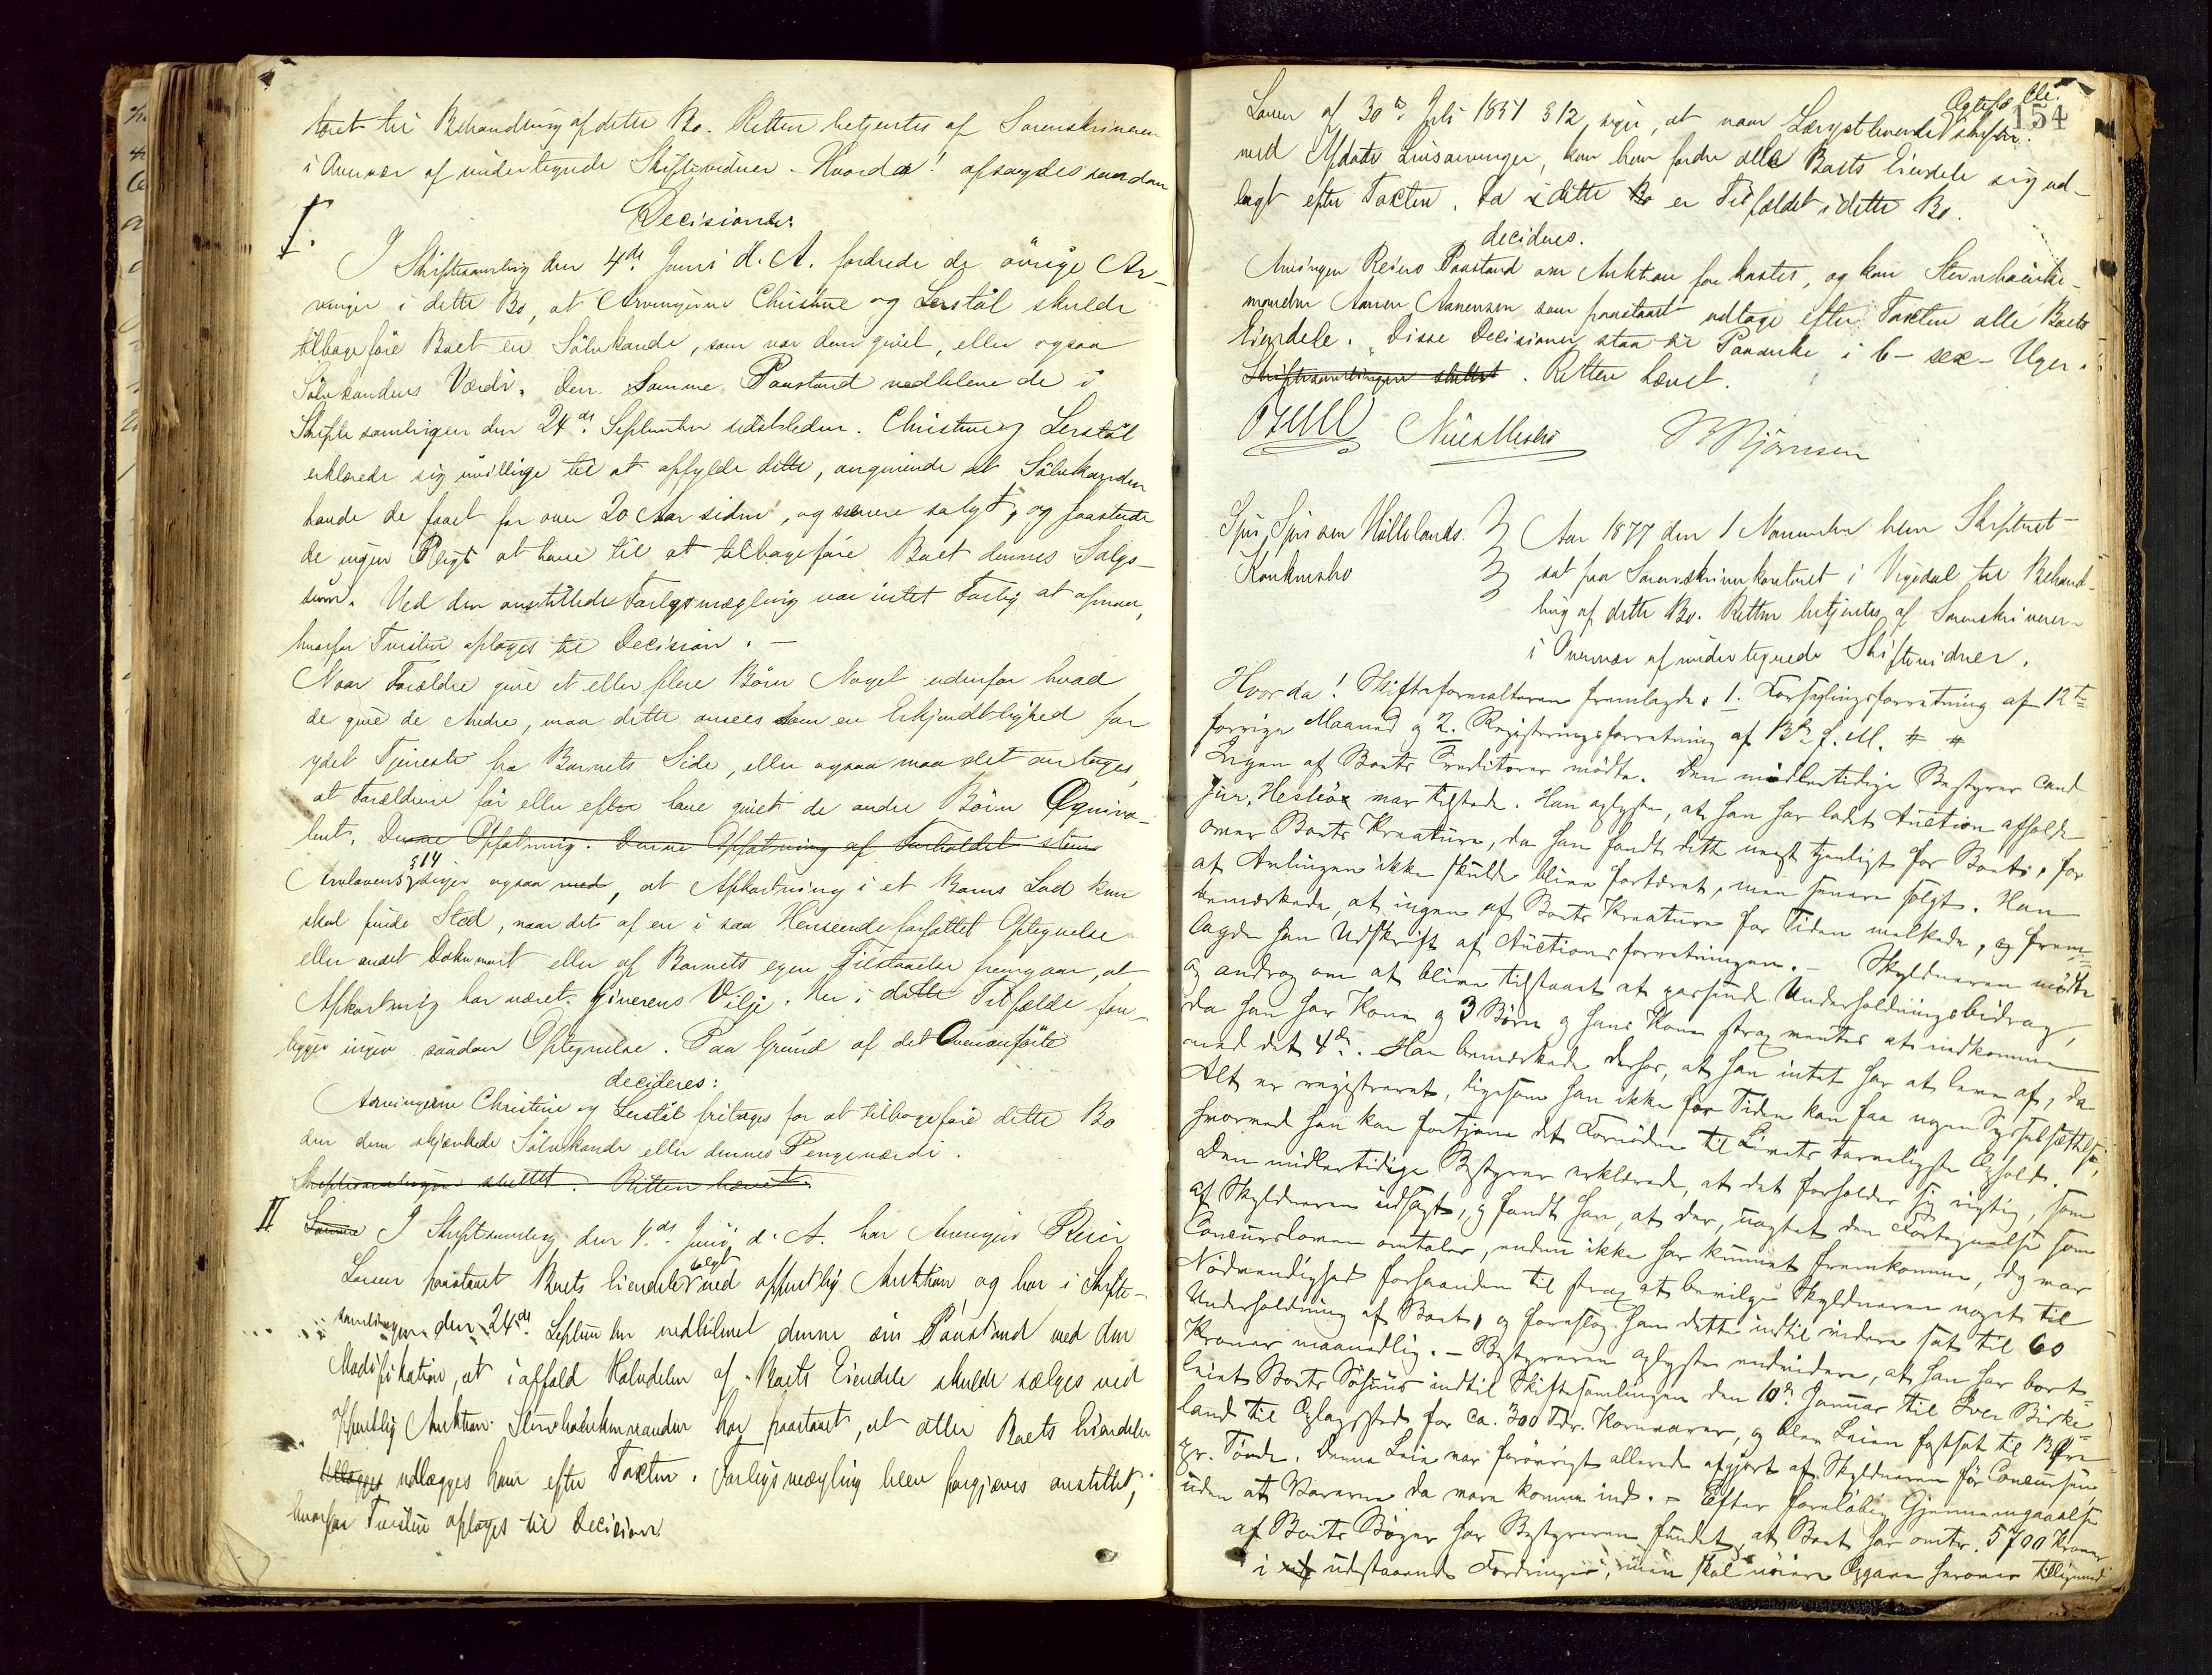 toret til Behandling af dette Bo. Retten betjentes af Sorenskriveren
i Overvær af undertegnede Skiftevidner. Hvorda! afsagdes saadan
Decisioner:
I.
I Skiftesamling den 4de Juni d. A. fordrede de øvrige Ar-
vinger i dette Bo, at Arvingerne Christine og Lerstøl skulde
tilbageføre Boet en Sølvkande, som var dem givet, eller ogsaa
Sølvkandens Værdi. Den Samme Paastand vedblevne de i
Skiftesamlingen den 24de September sidstleden. Christine og Lerstøl
erklærede sig uvillige til at opfylde dette, angivende at Sølvkanden
havde de faaet for over 20 Aar siden, og senere solgt, og paastode
de ingen Pligt at have til at tilbageføre Boet dennes Salgs-
sum. Ved den anstillede Forligsmægling var intet Forlig at opnaa,
hvorfor Tvisten optoges til Decision. —
Naar Forældre give et eller flere Børn Noget udenfor hvad
de give de Andre, maa dette ansees som en Erkjendtlighed for
ydet Tjeneste fra Barnets Side, eller ogsaa maa det antages,
at Forældrene før eller efter have givet de andre Børn Æqviva-
lent. Denne Opfatning. Denne Opfatning af Forholdet stem
Arvelovens § 14 siger ogsaa med, at Afkortning i et Barns Lod kun
skal finde Sted, naar det af en i saa Henseende forfattet Optegnelse
eller andet Dokument eller af Barnets egen Tilstaaelse fremgaar, at
Afkortning har været Giverens Vilje. Her i dette Tilfælde fore-
ligger ingen saadan Optegnelse. Paa Grund af det Ovenanførte
decideres:
Arvingerne Christine og Lerstøl fritages for at tilbageføre dette Bo
den dem skjænkede Sølvkande eller dennes Pengeværdi.
Skiftesamlingen sluttet. Retten hævet.
II Samme I Skiftesamling den 4de Juni d. A. har Arvingen Reier
Larsen paastaaet Boets Eiendele solgt ved offentlig Auktion og har i Skifte-
samlingen den 24de September vedblivet denne sin Paastand med den
Modifikation, at i alfald Halvdelen af Boets Eiendele skulde sælges ved
offentlig Auktion. Stervbøenkemanden har paastaaet, at alle Boets Eiendele
tillægges udlægges ham efter Taxten. Forligsmægling blev forgjæves anstillet,
hvorfor Tvisten optoges til Decision.
154
Loven af 30te Juli 1851 § 12, siger, at naar Længstlevende Ægtefælle skifter
med Afdøde Livsarvinger, kan han fordre alle Boets Eiendele sig ud-
lagt efter Taxten. Da i dette Bo er Tilfældet i dette Bo.
decideres.
Arvingen Reiers Paastand om Auktion forkastes, og kan Stervboenke-
manden Aanen Aanensen som paastaaet udtage efter Taxten alle Boets
Eiendele. Disse Decisioner staa til Paaanke i 6 - sex - Uger.
Skiftesamlingen sluttet. Retten hævet.
Bjørnsen
Konkursbo
Aar 1877 den 1 November blev Skifteret
sat paa Sorenskriverkontoret i Vegusdal til Behand-
ling af dette Bo. Retten betjentes af Sorenskriveren
i Overvær af undertegnede Skiftevidner.
Hvorda! Skifteforvalteren fremlagde: 1. Forseglingsforretning af 12te
forrige Maaned og 2. Registreringsforretning af 13de f. M. # #
Ingen af Boets Creditorer mødte. Den midlertidige Bestyrer cand
jur. Heskøx var tilstede. Han oplyste, at han har ladet Auction afholde
over Boets Kreature, da han fandt dette mest tjenligt for Boet, for
at Avlingen ikke skulde blive fortæret, men senere solgt. Han
bemærkede, at ingen af Boets Kreature for Tiden melkede, og frem-
lagde han Udskrift af Auctionsforretningen. — Skyldneren mødte
og androg om at blive tilstaaet et passende Underholdningsbidrag,
da han har Kone og 3 Børn og hans Kone strax ventes at nedkomme
med det 4de. Han bemærkede derhos, at han intet har at leve af, da
Alt er registreret, ligesom han ikke for Tiden kan faa nogen Sysselsættelse,
hvorved han kan fortjene det Fornødne til Livets tarveligste Ophold.
Den midlertidige Bestyrer erklærede, at det forholder sig rigtig, som
af Skyldneren udsagt, og fandt han, at der, uagtet den Fortegnelse som
Concursloven omtaler, endnu ikke har kunnet fremkomme, dog var
Nødvendighed forhaanden til strax at bevilge Skyldneren noget til
Underholdning af Boet, og foreslog han dette indtil videre sat til 60
Kroner maanedlig. — Bestyreren oplyste endvidere, at han har bort-
leiet Boets Søhuus indtil Skiftesamlingen den 10de Januar til Sven Birke-
land til Oplagssted for ca. 300 Tdr. Kornvarer, og blev Leien fastsat til 13 Øre
pr. Tønde. Denne Leie var forøvrigt allerede afgjort af Skyldneren før Concursen,
uden at Varerne da vare komne ind. — Efter foreløbig Gjennemgaaelse
af Boets Bøger har Bestyreren fundet, at Boet har omtr. 5700 Kroner
i udestaaende Fordringer, men skal nøiere Opgave herover tilligemed